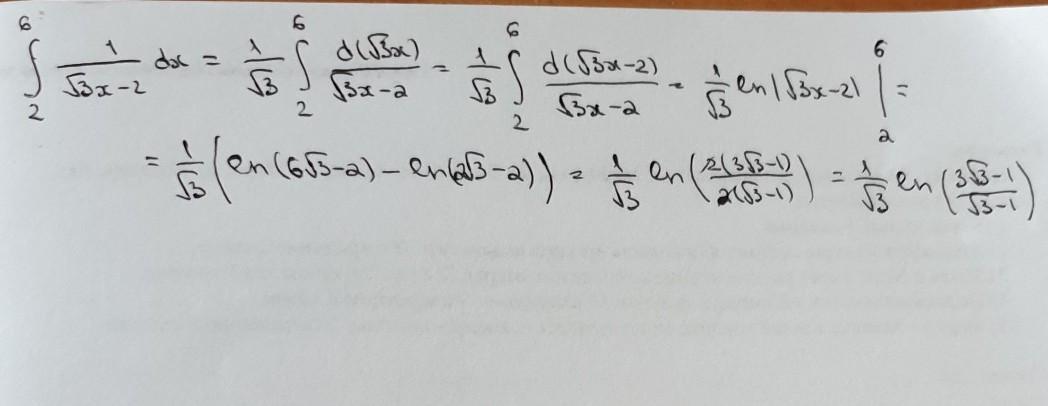 ∫₂⁶ 1/(√3x-2) dx = 1/√3 ∫₂⁶ d(√3x)/(√3x-2) = 1/√3 ∫₂⁶ d(√3x-2)/(√3x-2) = 1/√3 ln|√3x-2| |₂⁶ =
= 1/√3 (ln(6√3-2) - ln(2√3-2)) = 1/√3 ln(2(3√3-1)/2(√3-1)) = 1/√3 ln((3√3-1)/(√3-1))